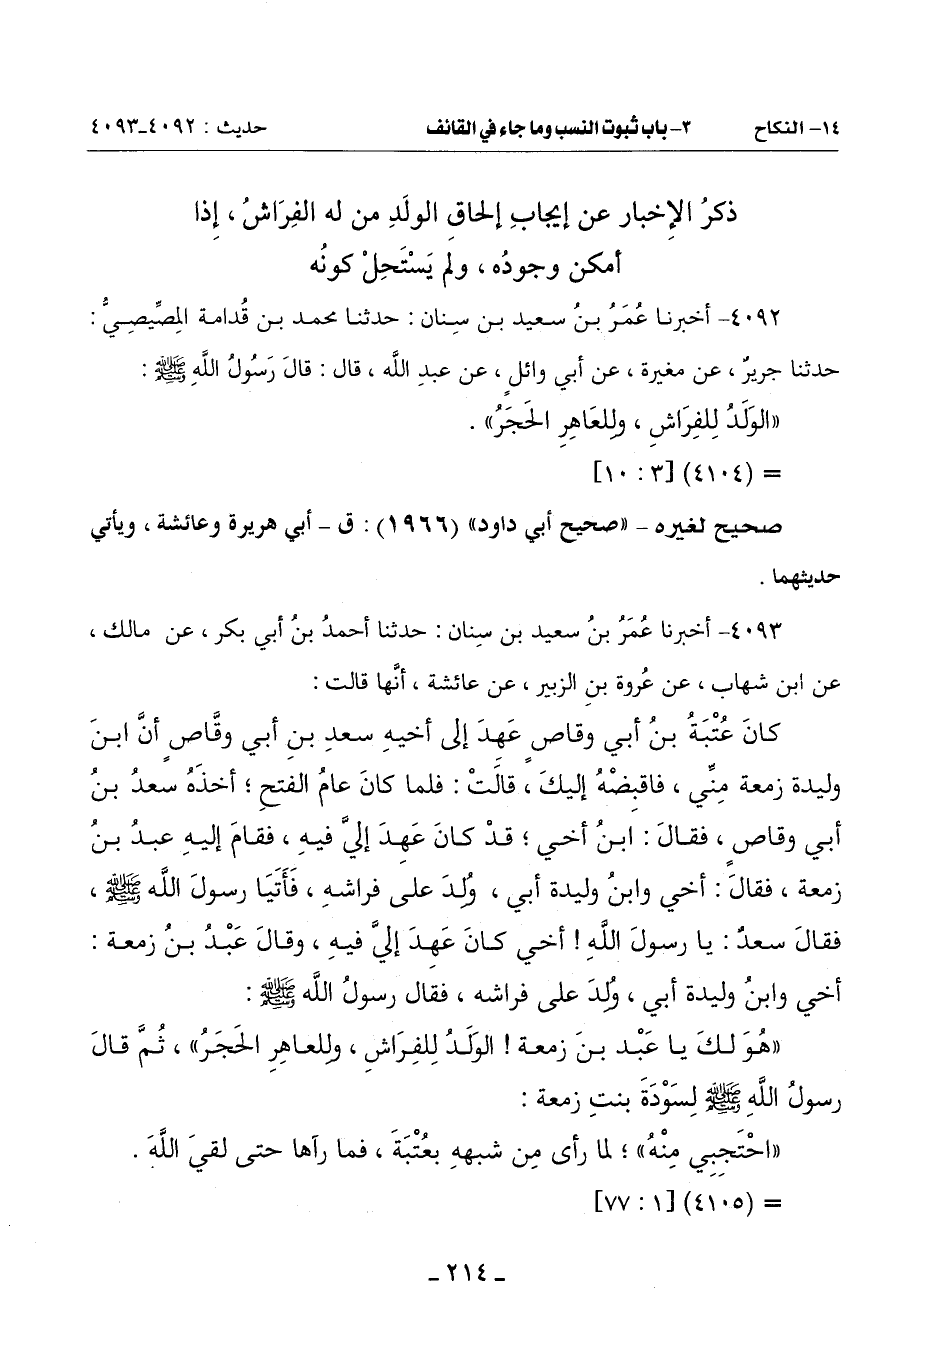 ١٤- النكاح ٣- باب ثبوت النسب وما جاء في القائف حديث : ٤٠٩٢-٤٠٩٣
ذكرُ الإِخبار عن إيجابِ إلحاقِ الولَدِ من له الفِرَاشُ ، إذا
أمكن وجودُه ، ولم يَسْتَحِلْ كونُه
٤٠٩٢- أخبرنا عُمَرُ بنُ سعيد بن سِنان : حدثنا محمد بن قُدامة المِصِّيصِيُّ :
حدثنا جريرٌ ، عن مغيرة ، عن أبي وائلٍ ، عن عبدِ اللَّه ، قال : قالَ رَسُولُ اللَّهِ ﷺ :
«الوَلَدُ لِلفِرَاشِ ، ولِلعَاهِرِ الحَجَرُ» .
= (٤١٠٤) [٣ : ١٠]
صحيح لغيره - «صحيح أبي داود» (١٩٦٦) : ق - أبي هريرة وعائشة ، ويأتي
حديثهما .
٤٠٩٣- أخبرنا عُمَرُ بنُ سعيد بن سِنان : حدثنا أحمدُ بنُ أبي بكر ، عن مالك ،
عن ابن شهاب ، عن عُروة بنِ الزبير ، عن عائشة ، أنَّها قالت :
كانَ عُتْبَةُ بنُ أبي وقاصٍ عَهِدَ إلى أخيهِ سعدِ بنِ أبي وقَّاصٍ أنَّ ابنَ
وليدة زمعة مِنِّي ، فاقبِضْهُ إليكَ ، قالَتْ : فلما كانَ عامُ الفتحِ ؛ أخذَهُ سعدُ بنُ
أبي وقاصٍ ، فقالَ : ابنُ أخي ؛ قدْ كانَ عَهِدَ إليَّ فيهِ ، فقامَ إليهِ عبدُ بنُ
زمعة ، فقالَ : أخي وابنُ وليدة أبي ، وُلِدَ على فراشهِ ، فَأَتَيَا رسولَ اللَّه ﷺ ،
فقالَ سعدٌ : يا رسولَ اللَّهِ ! أخي كانَ عَهِدَ إليَّ فيهِ ، وقالَ عَبْدُ بنُ زمعة :
أخي وابنُ وليدة أبي ، وُلِدَ على فراشه ، فقال رسولُ اللَّه ﷺ :
«هُوَ لكَ يا عَبْد بنَ زمعة ! الولَدُ لِلفِرَاشِ ، وللعاهرِ الحَجَرُ» ، ثُمَّ قالَ
رسولُ اللَّهِ ﷺ لِسَوْدَةَ بنتِ زمعة :
«احْتَجِبِي مِنْهُ» ؛ لما رأى مِن شبههِ بعُتْبَةَ ، فما رآها حتى لقيَ اللَّهَ .
= (٤١٠٥) [١ : ٧٧]
- ٢١٤ -